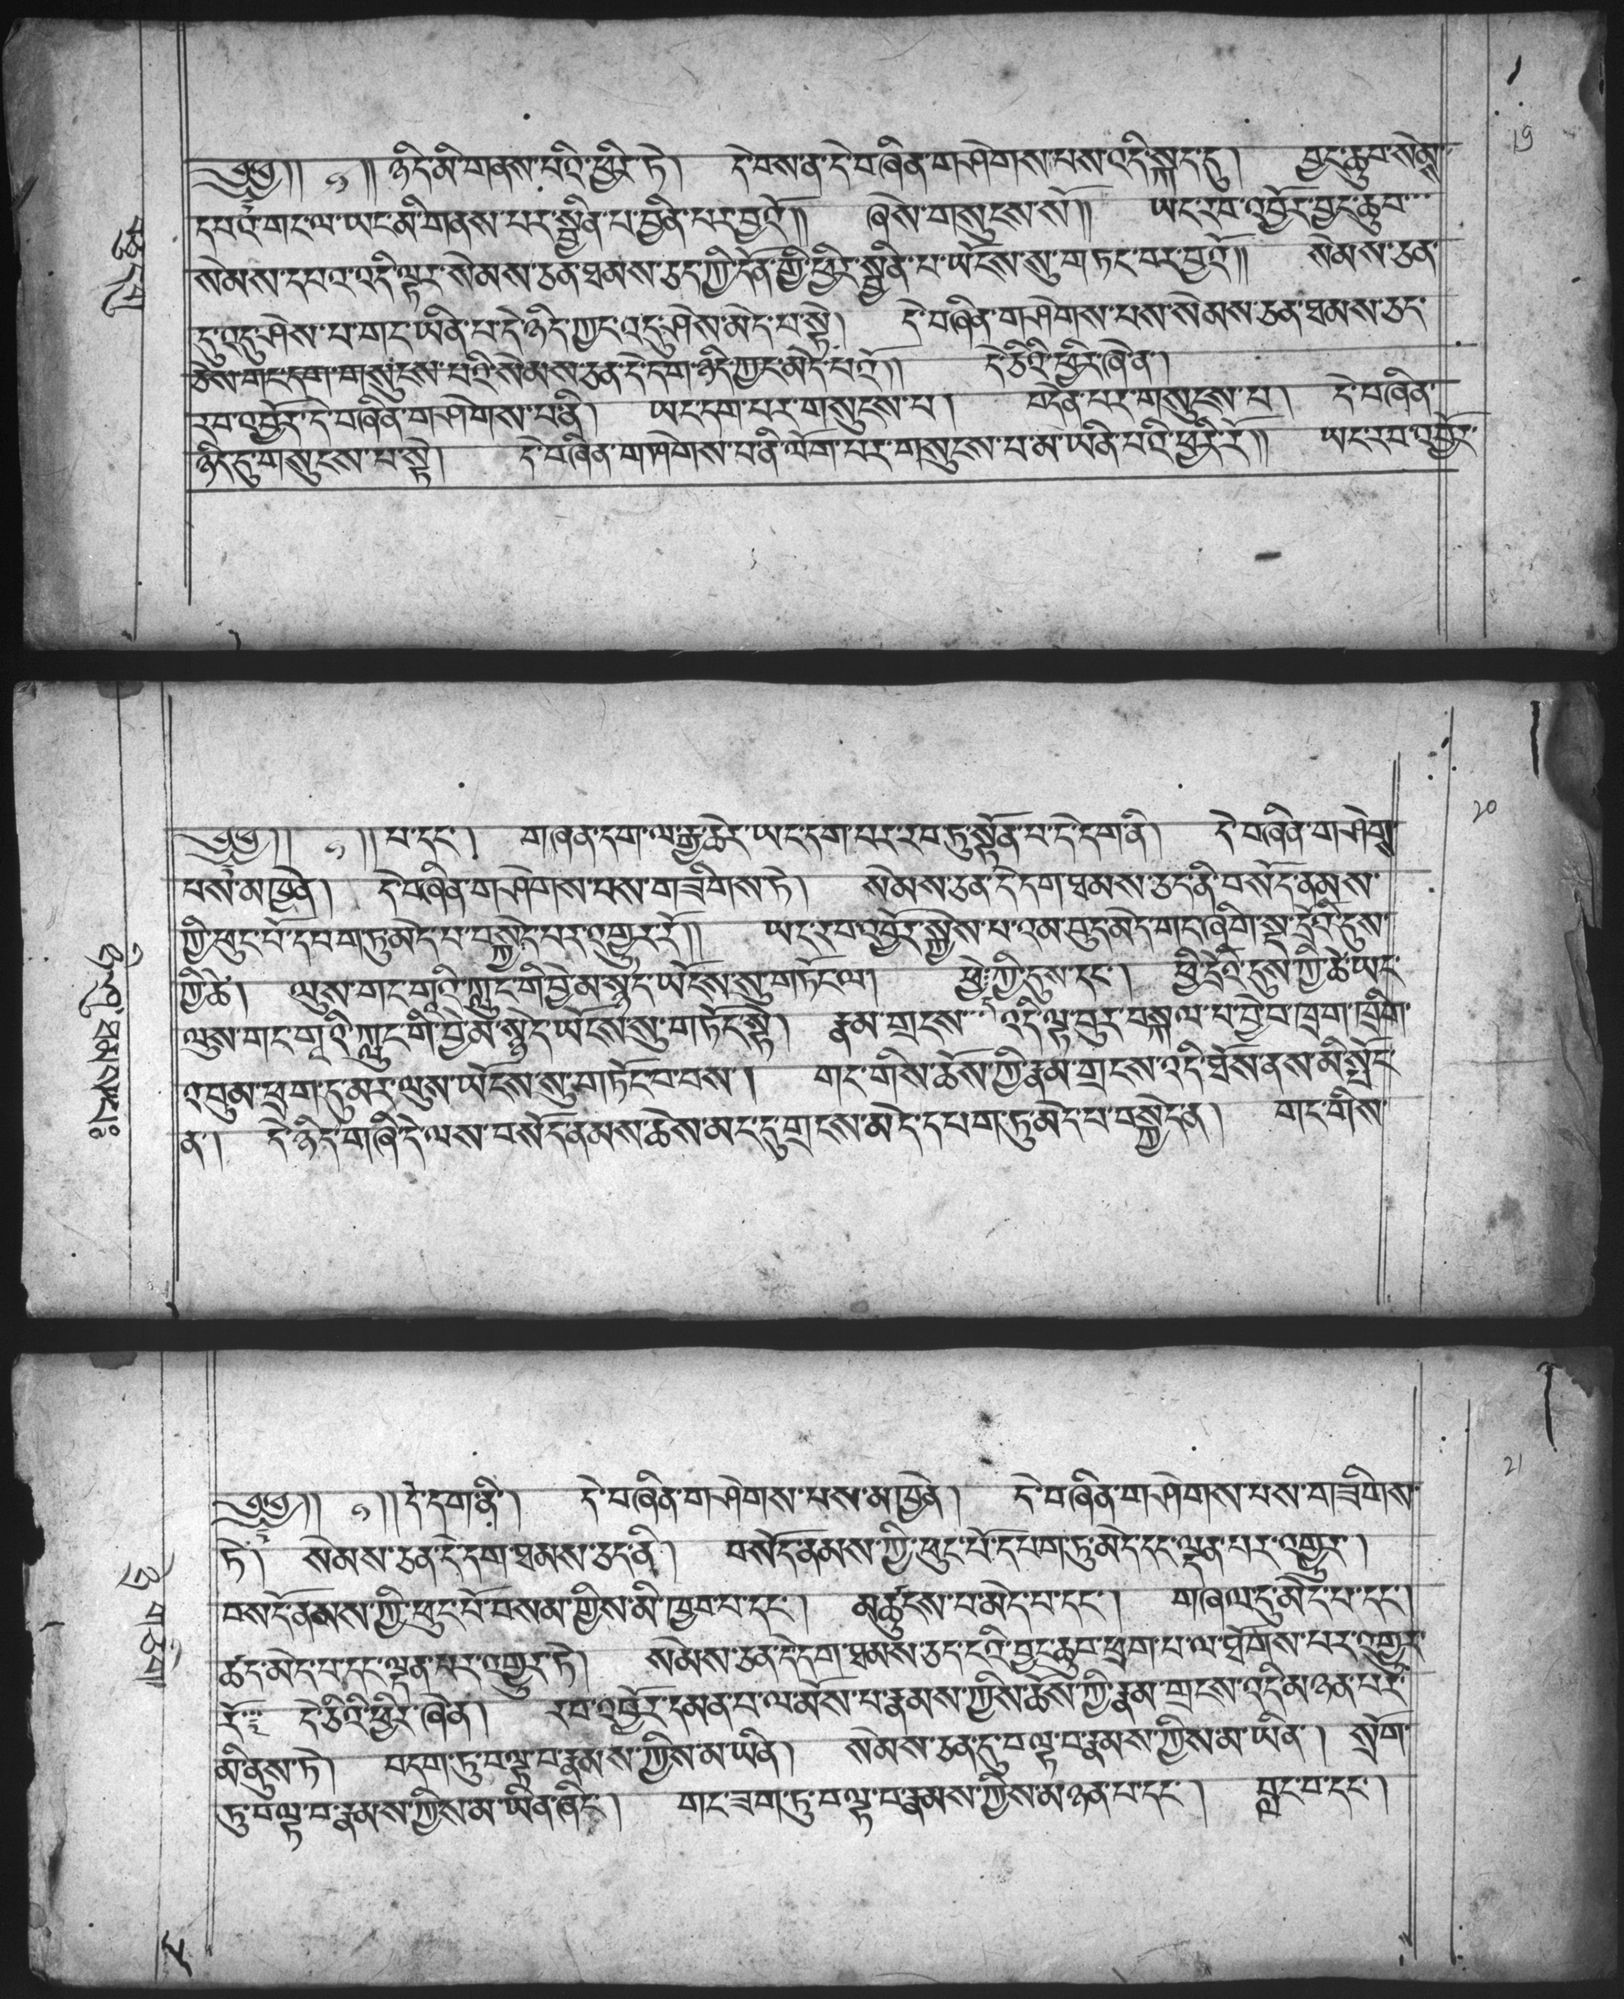 ༄༅།། ༡ །།ཉིད་མི་གནས་པའི་ཕྱིར་ཏེ། དེ་བས་ན་དེ་བཞིན་གཤེགས་པས་འདི་སྐད་དུ། བྱང་ཆུབ་སེམས་
དཔའ་གང་ལ་ཡང་མི་གནས་པར་སྦྱིན་པ་བྱིན་པར་བྱའོ།། ཞེས་གསུངས་སོ།། ཡང་རབ་འབྱོར་བྱང་ཆུབ་
སེམས་དཔའ་འདི་ལྟར་སེམས་ཅན་ཐམས་ཅད་ཀྱི་དོན་གྱི་ཕྱིར་སྦྱིན་པ་ཡོངས་སུ་གཏང་བར་བྱའོ།། སེམས་ཅན་
དུ་འདུ་ཤེས་པ་གང་ཡིན་པ་དེ་ཉིད་ཀྱང་འདུ་ཤེས་མེད་པ་སྟེ། དེ་བཞིན་གཤེགས་པས་སེམས་ཅན་ཐམས་ཅད་
ཅེས་གང་དག་གསུངས་པའི་སེམས་ཅན་དེ་དག་ཉིད་ཀྱང་མེད་པའོ།། དེ་ཅིའི་ཕྱིར་ཞེ་ན།
རབ་འབྱོར་དེ་བཞིན་གཤེགས་པ་ནི། ཡང་དག་པར་གསུངས་པ། བདེན་པར་གསུངས་པ། དེ་བཞིན་
ཉིད་དུ་གསུངས་པ་སྟེ། དེ་བཞིན་གཤེགས་པ་ནི་ལོག་པར་གསུངས་པ་མ་ཡིན་པའི་ཕྱིར་རོ།། ཡང་རབ་འབྱོར་
༄༅།། ༡ །།པ་དང་། གཞན་དག་ལ་རྒྱ་ཆེར་ཡང་དག་པར་རབ་ཏུ་སྟོན་པ་དེ་དག་ནི། དེ་བཞིན་གཤེགས་
པས་མཁྱེན། དེ་བཞིན་གཤེགས་པས་གཟིགས་ཏེ། སེམས་ཅན་དེ་དག་ཐམས་ཅད་ནི་བསོད་ནམས་
ཀྱི་ཕུང་པོ་དཔག་ཏུ་མེད་པ་བསྐྱེད་པར་འགྱུར་རོ།། ཡང་རབ་འབྱོར་སྐྱེས་པ་འམ་བུད་མེད་གང་ཞིག་སྔ་དྲོའི་དུས་
ཀྱི་ཚེ། ལུས་གང་གཱའི་ཀླུང་གི་བྱེ་མ་སྙེད་ཡོངས་སུ་གཏོང་ལ། ཕྱེད་ཀྱི་དུས་དང་། ཕྱི་དྲོའི་དུས་ཀྱི་ཚེ་ཡང་
ལུས་གང་གཱའི་ཀླུང་གི་བྱེ་མ་སྙེད་ཡོངས་སུ་གཏོང་སྟེ། རྣམ་གྲངས་འདི་ལྟ་བུར་བསྐལ་པ་བྱེ་བ་ཁྲག་ཁྲིག་
འབུམ་ཕྲག་དུ་མར་ལུས་ཡོངས་སུ་གཏོང་བ་བས། གང་གིས་ཆོས་ཀྱི་རྣམ་གྲངས་འདི་ཐོས་ནས་མི་སྤོང་
ན། དེ་ཉིད་གཞི་དེ་ལས་བསོད་ནམས་ཆེས་མང་དུ་གྲངས་མེད་དཔག་ཏུ་མེད་པ་བསྐྱེད་ན། གང་གིས་
༄༅།། ༡ །།དེ་དག་ནི། དེ་བཞིན་གཤེགས་པས་མཁྱེན། དེ་བཞིན་གཤེགས་པས་གཟིགས་
ཏེ། སེམས་ཅན་དེ་དག་ཐམས་ཅད་ནི། བསོད་ནམས་ཀྱི་ཕུང་པོ་དཔག་ཏུ་མེད་དང་ལྡན་པར་འགྱུར།
བསོད་ནམས་ཀྱི་ཕུང་པོ་བསམ་གྱིས་མི་ཁྱབ་པ་དང་། མཚུངས་པ་མེད་པ་དང་། གཞལ་དུ་མེད་པ་དང་།
ཚད་མེད་པ་དང་ལྡན་པར་འགྱུར་ཏེ། སེམས་ཅན་དེ་དག་ཐམས་ཅད་ངའི་བྱང་ཆུབ་ཕྲག་པ་ལ་ཐོགས་པར་འགྱུར་
རོ༔ དེ་ཅིའི་ཕྱིར་ཞེ་ན། རབ་འབྱོར་དམན་པ་ལ་མོས་པ་རྣམས་ཀྱིས་ཆོས་ཀྱི་རྣམ་གྲངས་འདི་མཉན་པར་
མི་ནུས་ཏེ། བདག་ཏུ་བལྟ་བ་རྣམས་ཀྱིས་མ་ཡིན། སེམས་ཅན་དུ་བལྟ་བ་རྣམས་ཀྱིས་མ་ཡིན། སྲོག་
ཏུ་བལྟ་བ་རྣམས་ཀྱིས་མ་ཡིན་ཞིང་། གང་ཟག་ཏུ་བལྟ་བ་རྣམས་ཀྱིས་མཉན་པ་དང་། བླང་བ་དང་།
19
20
21